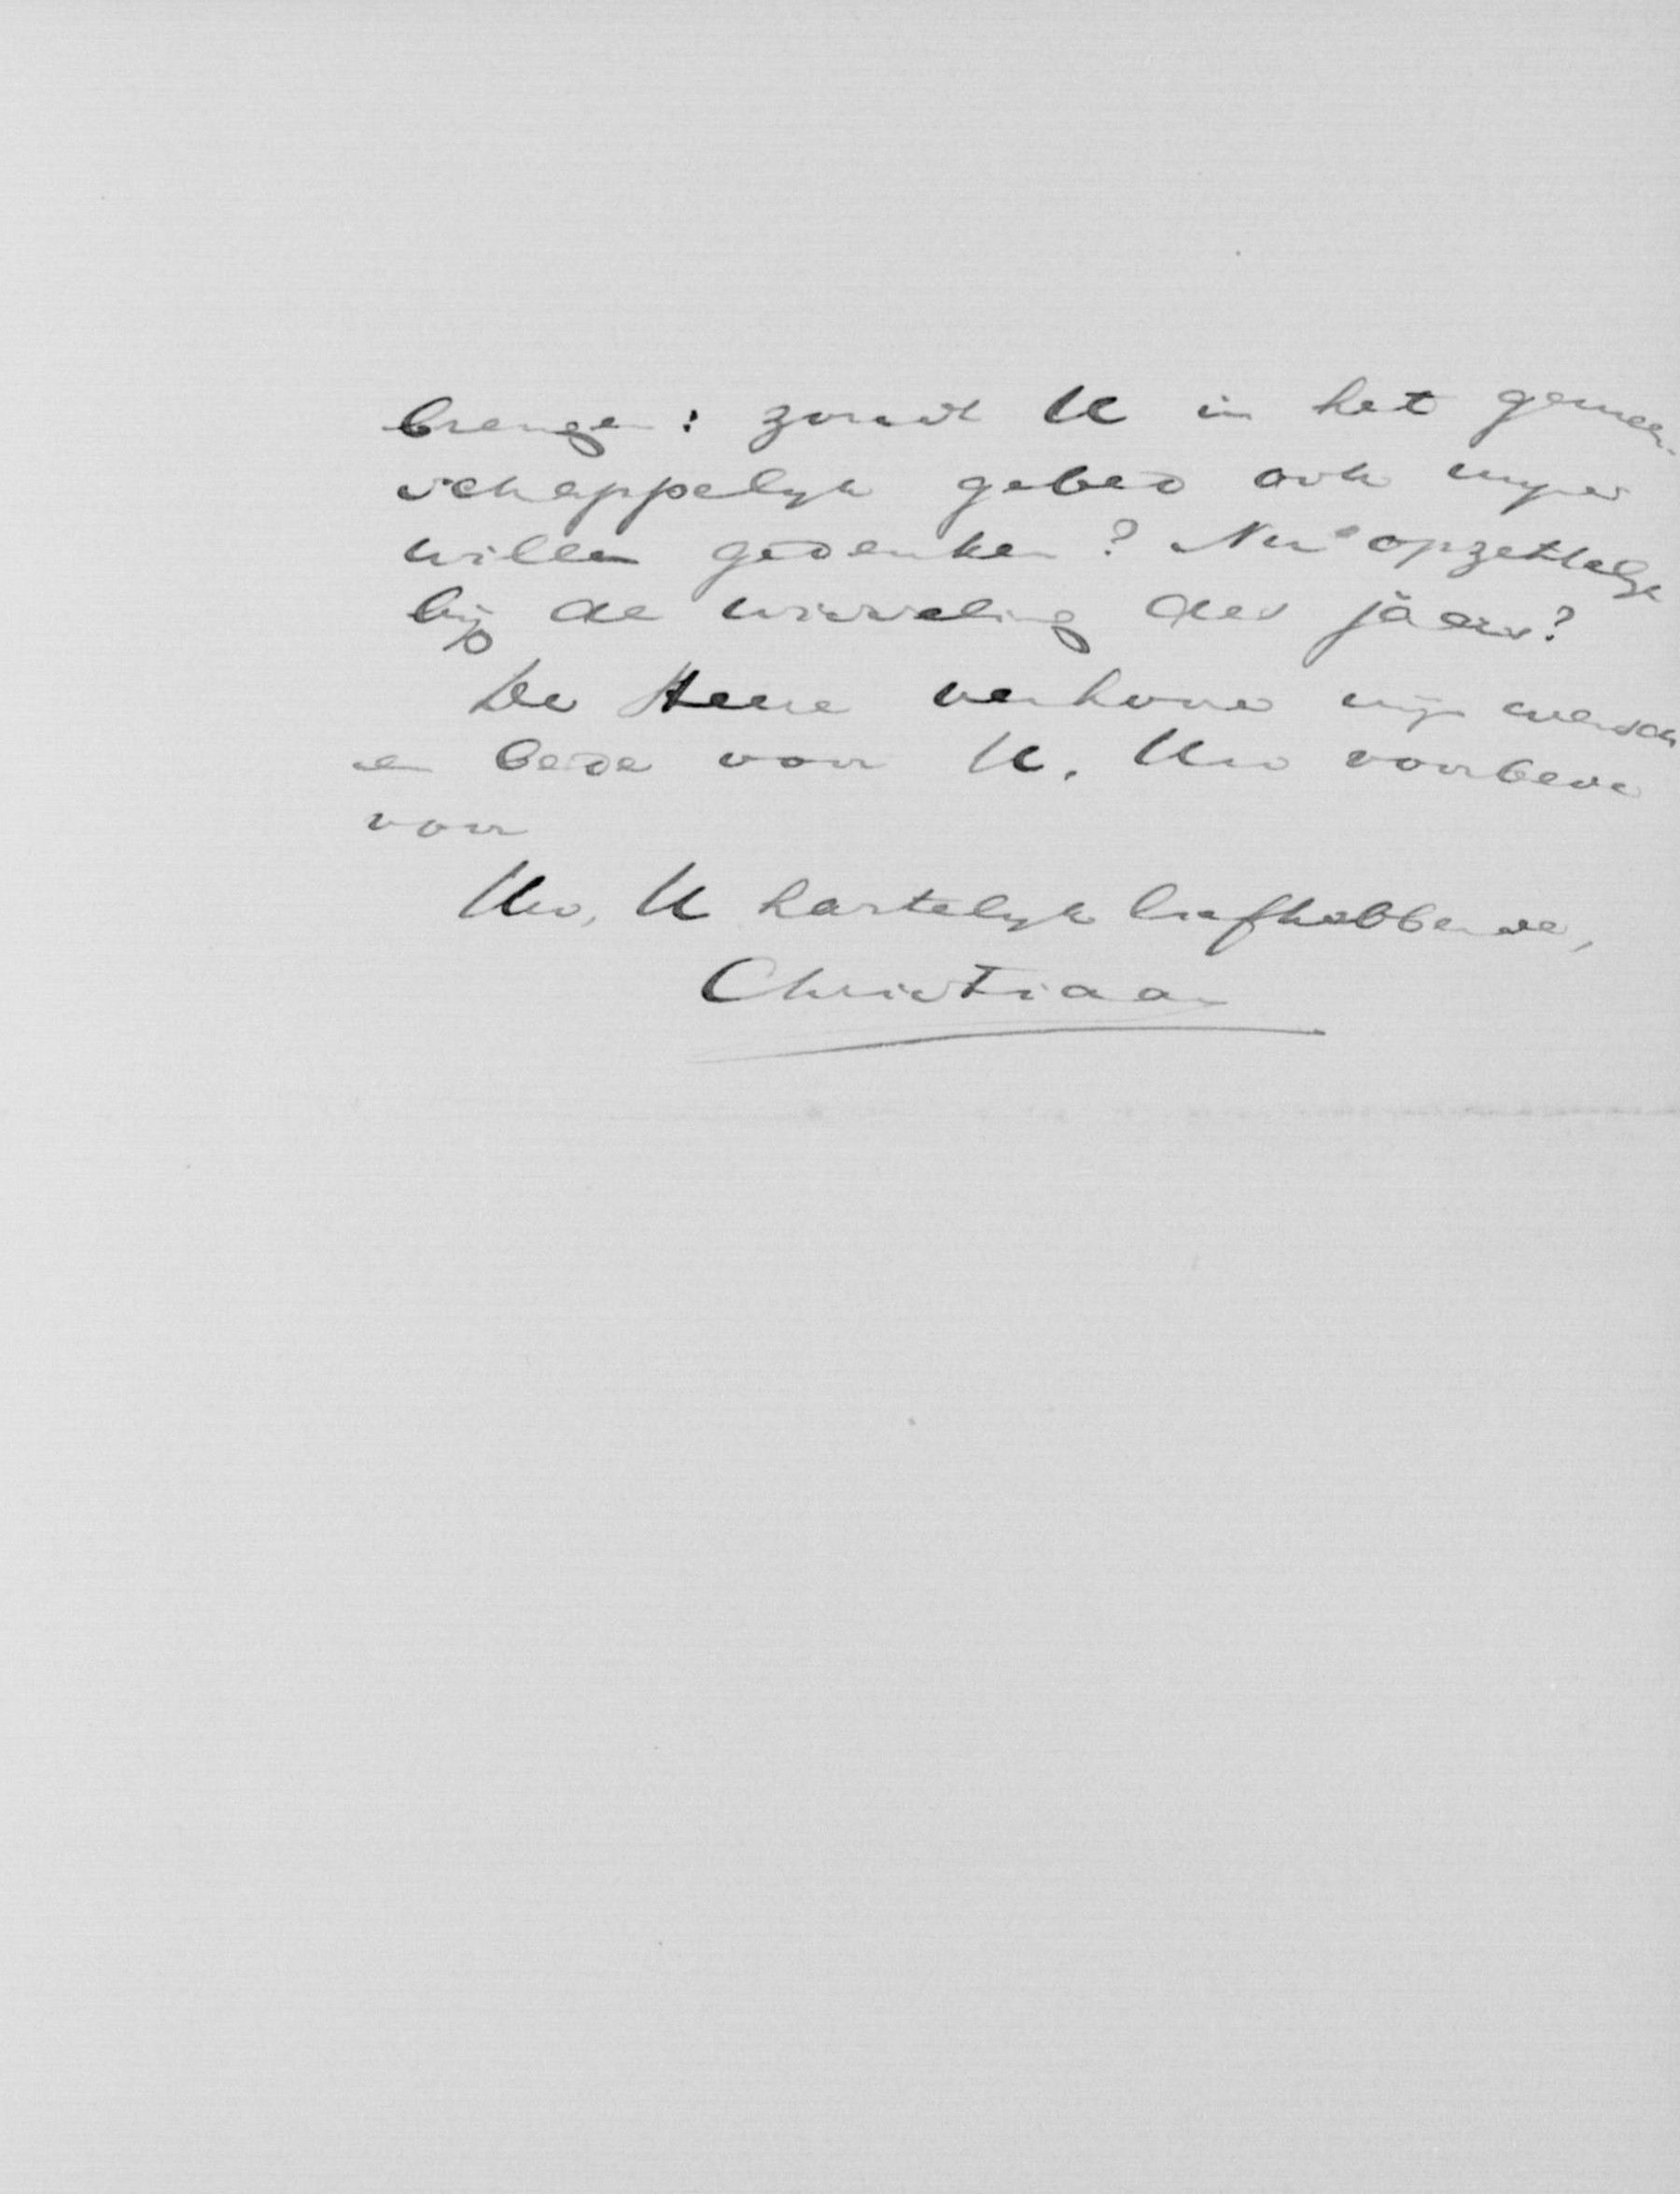 brengen: zoudt U in het gemeen-
schappelyk gebed ook myner
willen gedenken? Nu opzettelyk
bij de wisseling des jaars?
De Heere verhoore mijn wensch
en bede voor U, Uw voorbede
voor
Uw, U hartelyk liefhebbende,
Christiaan